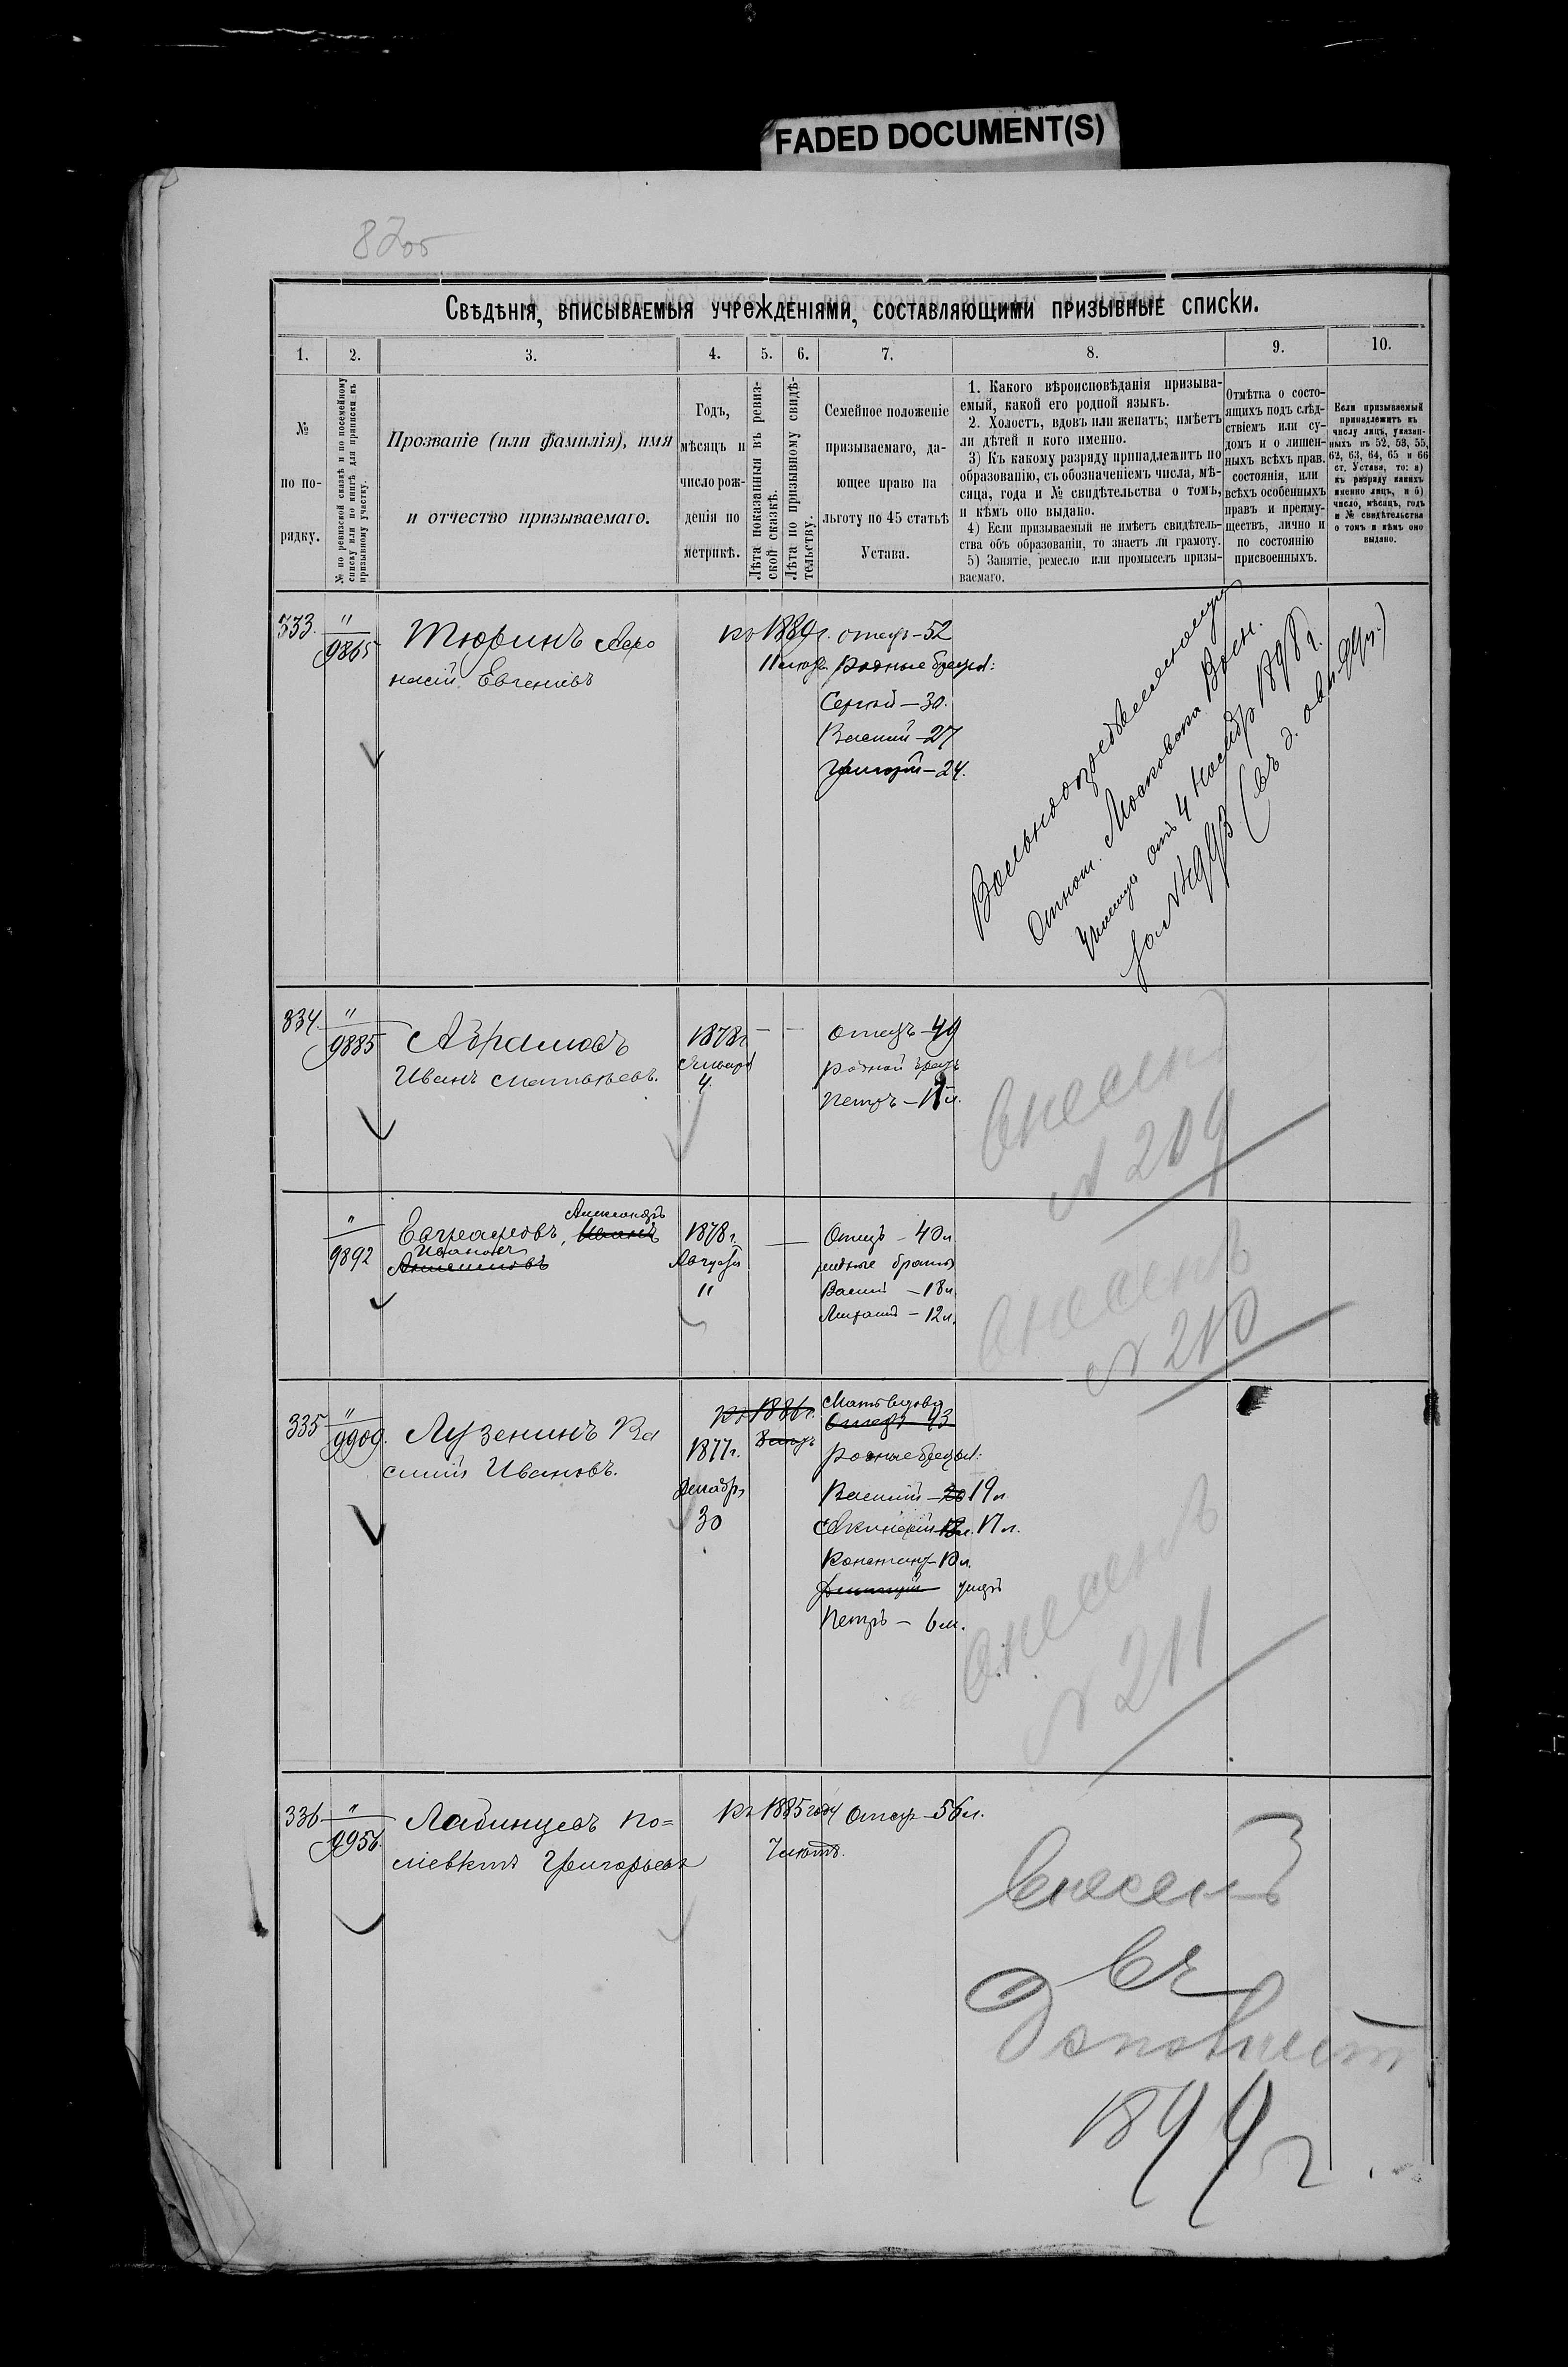 FADED DOCUMENT(S)
82об
Свѣдѣнія, вписываемыя учрежденіями, составляющими призывные списки.
1.
2.
3.
4.
5.
6.
7.
8.
9.
10.
№
по по-
рядку.
№ по ревизской сказкѣ и по посемейному
списку или по книгѣ для приписки къ
призывному участку.
Прозваніе (или фамилія), имя
и отчество призываемаго.
Годъ,
мѣсяцъ и
число рож-
денія по
метрикѣ.
Лѣта показанныя въ ревиз-
ской сказкѣ.
Лѣта по призывному свидѣ-
тельству.
Семейное положеніе
призываемаго, да-
ющее право на
льготу по 45 статьѣ
Устава.
1. Какого вѣроисповѣданія призыва-
емый, какой его родной языкъ.
2. Холостъ, вдовъ или женатъ; имѣетъ
ли дѣтей и кого именно.
3) Къ какому разряду принадлежитъ по
образованію, съ обозначеніемъ числа, мѣ-
сяца, года и № свидѣтельства о томъ,
и кѣмъ оно выдано.
4) Если призываемый не имѣетъ свидѣтель-
ства объ образованіи, то знаетъ ли грамоту.
5) Занятіе, ремесло или промыселъ призы-
ваемаго.
Отмѣтка о состо-
ящихъ подъ слѣд-
ствіемъ или су-
домъ и о лишен-
ныхъ всѣхъ прав.
состоянія, или
всѣхъ особенныхъ
правъ и преиму-
ществъ, лично и
по состоянію
присвоенныхъ.
Если призываемый
принадлежитъ къ
числу лицъ, указан-
ныхъ въ 52, 53, 55,
62, 63, 64, 65 и 66
ст. Устава, то: а)
къ разряду какихъ
именно лицъ, и б)
число, мѣсяцъ, годъ
и № свидѣтельства
о томъ и кѣмъ оно
выдано.
333.
"
9865
Тюринъ Афо
насій Евгеніевъ
къ 1889г.
11
отецъ - 52
родные братья:
Сергѣй - 30.
Василий - 27
Григорій - 24.
Вольноопредѣляющійся
Отнош. Московскаго Воен.
Училища отъ 4 Ноября 1898 г.
за №
334.
"
9885
Абрамовъ
Иванъ Матвѣевъ.
1878г
Января
4.
— —
отецъ - 49
родной братъ
Петръ -
Внесенъ
№ 209
"
9892
Евграфовъ, Иванъ
Александръ
Ивановъ
1878 г.
Августа
11
—
Отецъ - 40 л
родные братья
Василій - 18 л.
- 12 л.
Внесенъ
№ 210
335
"
9909.
Лузенинъ Ва
силій Ивановъ.
къ 1886г.
1877г.
Декабрь
30
отецъ 43
Родные братья:
Василий - 20 19 л
17 л.
Константинъ -
Дмитрій умеръ
Петръ - 6 л.
Внесенъ
№ 211
336
"
9956.
Лабинцевъ По=
ліевктъ Григорьевъ
Къ 1885 году
7 лѣтъ.
Отецъ - 56 л.
Внесенъ
въ
1899 г.